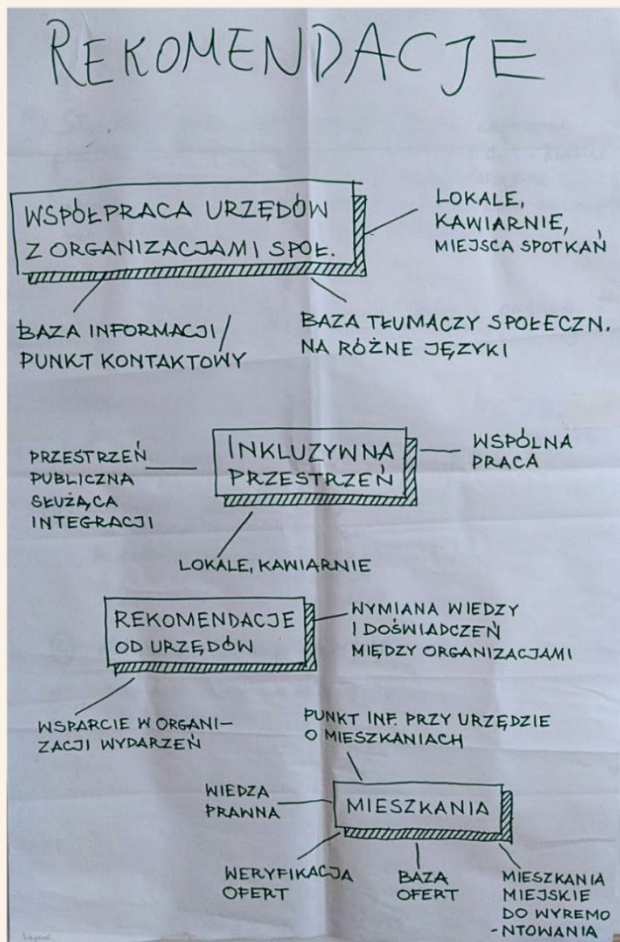 REKOMENDACJE
WSPÓŁPRACA URZĘDÓW
Z ORGANIZACJAMI SPOŁ.
LOKALE,
KAWIARNIE,
MIEJSCA SPOTKAŃ
BAZA INFORMACJI/
PUNKT KONTAKTOWY
BAZA TŁUMACZY SPOŁECZN.
NA RÓŻNE JĘZYKI
INKLUZYWNA
PRZESTRZEŃ
WSPÓLNA
PRACA
PRZESTRZEŃ
PUBLICZNA
SŁUŻĄCA
INTEGRACJI
LOKALE, KAWIARNIE
REKOMENDACJE
OD URZĘDÓW
WYMIANA WIEDZY
I DOŚWIADCZEŃ
MIĘDZY ORGANIZACJAMI
WSPARCIE W ORGANI-
ZACJI WYDARZEŃ
PUNKT INF. PRZY URZĘDZIE
O MIESZKANIACH
WIEDZA
PRAWNA
MIESZKANIA
WERYFIKACJA
OFERT
BAZA
OFERT
MIESZKANIA
MIEJSKIE
DO WYREMO
-NTOWANIA